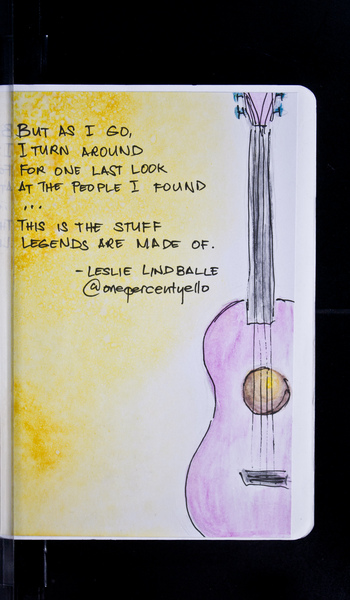 BUT AS I GO,
I TURN AROUND
FOR ONE LAST LOOK
AT THE PEOPLE I FOUND
...
THIS IS THE STUFF
LEGENDS ARE MADE OF.
- LESLIE LINDBALLE
@onepercentyello